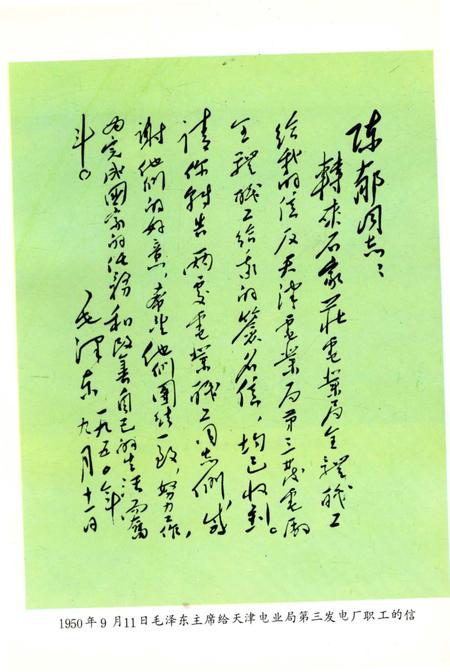 陈郁同志：
轉来石家莊電業局全體職工
给我的信及天津電業局第三發電廠
全體職工给我的簽名信，均已收到。
请你转告两处電業職工同志们，感
谢他们的好意，希望他们團结一致，努力工作，
为完成國家的任務和改善自己的生活而奮
斗。
毛泽东
一九五〇年
九月十一日
1950年9月11日毛泽东主席给天津电业局第三发电厂职工的信